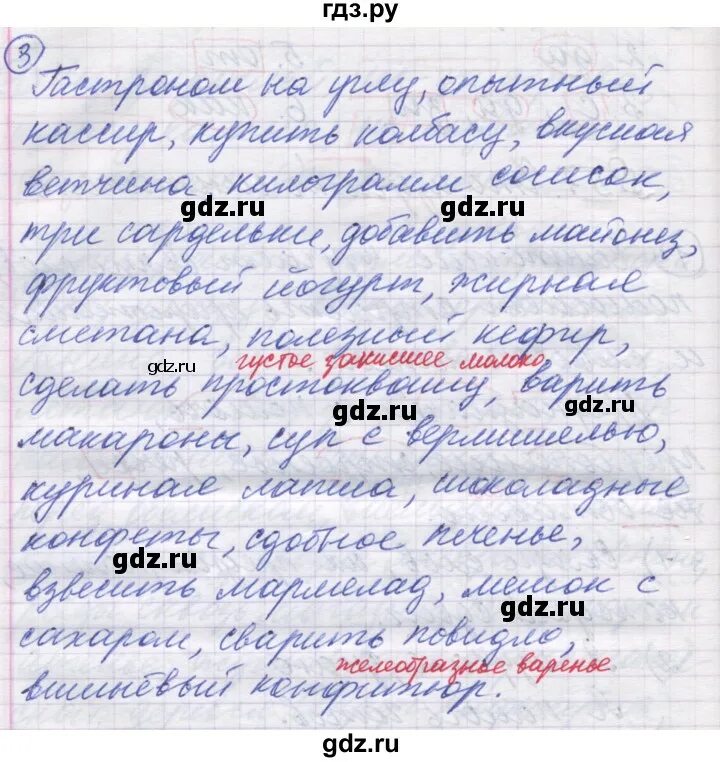 гдз.ру
3
Гастроном на углу, опытный
кассир, купить колбасу, вкусная
ветчина килограмм сосисок,
gdz.ru gdz.ru
три сардельки, добавить майонез,
фруктовый йогурт, жирная
сметана, полезный кефир,
gdz.ru густое закисшее молоко
сделать простоквашу, варить
gdz.ru gdz.ru
макароны, суп с вермишелью,
куриная лапша, шоколадные
конфеты, сдобное печенье,
gdz.ru
взвесить мармелад, мешок с
gdz.ru
сахаром, сварить повидло,
желеобразное варенье
вишнёвый конфитюр.
gdz.ru
gdz.ru